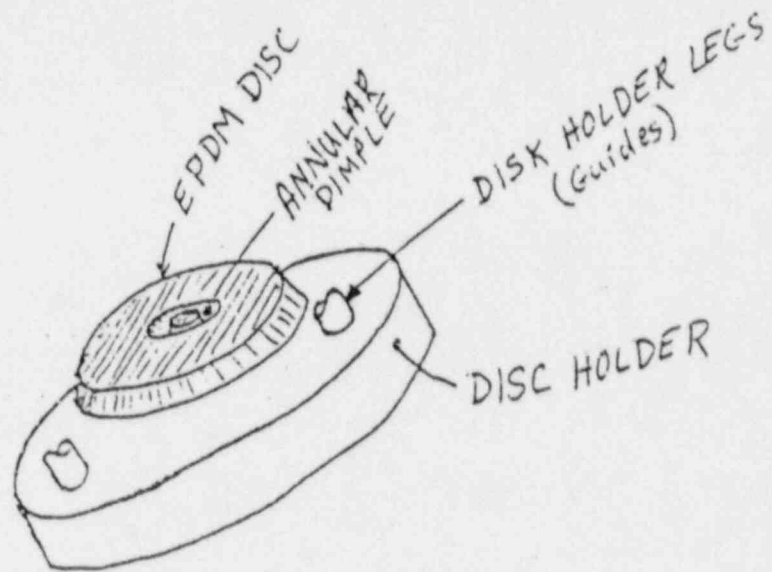 EPDM DISC
ANNULAR
DIMPLE
DISK HOLDER LEGS
(Guides)
DISC HOLDER